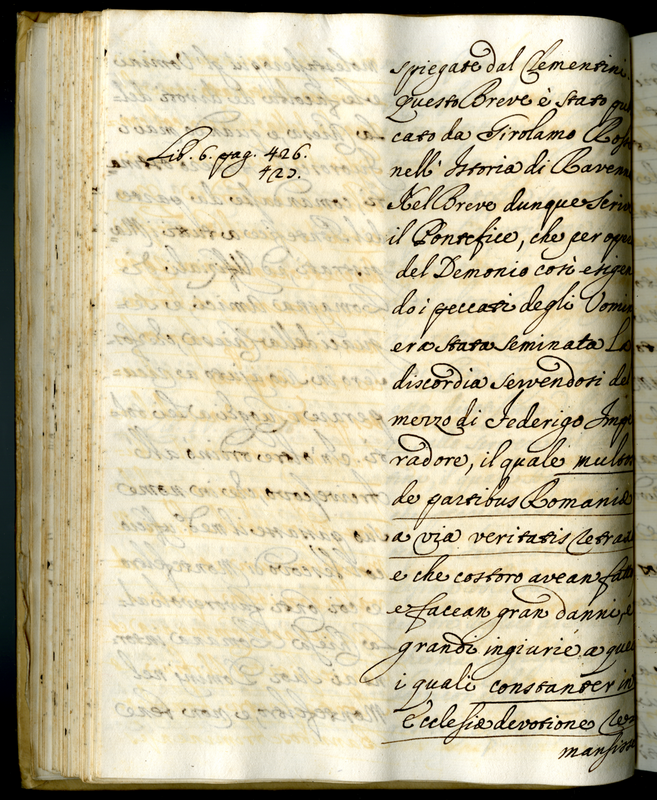 Lib. 6. pag. 426.
423.
spiegate dal Clementini.
Questo Breve è stato
cato da Girolamo
nell' Istoria di Ravenn
Nel Breve dunque scriv
il Pontefice, che per ope
del Demonio così esigen
do i peccati degli Uomin
era stata seminata La
discordia servendosi del
mezzo di Federigo Impe
radore, il quale multos
de partibus Romaniæ
a via veritatis retrax
e che costoro avean fatto
e facean gran danni, e
grandi ingiurie a quei
i quali constanter in
Ecclesiæ devotione
mansi